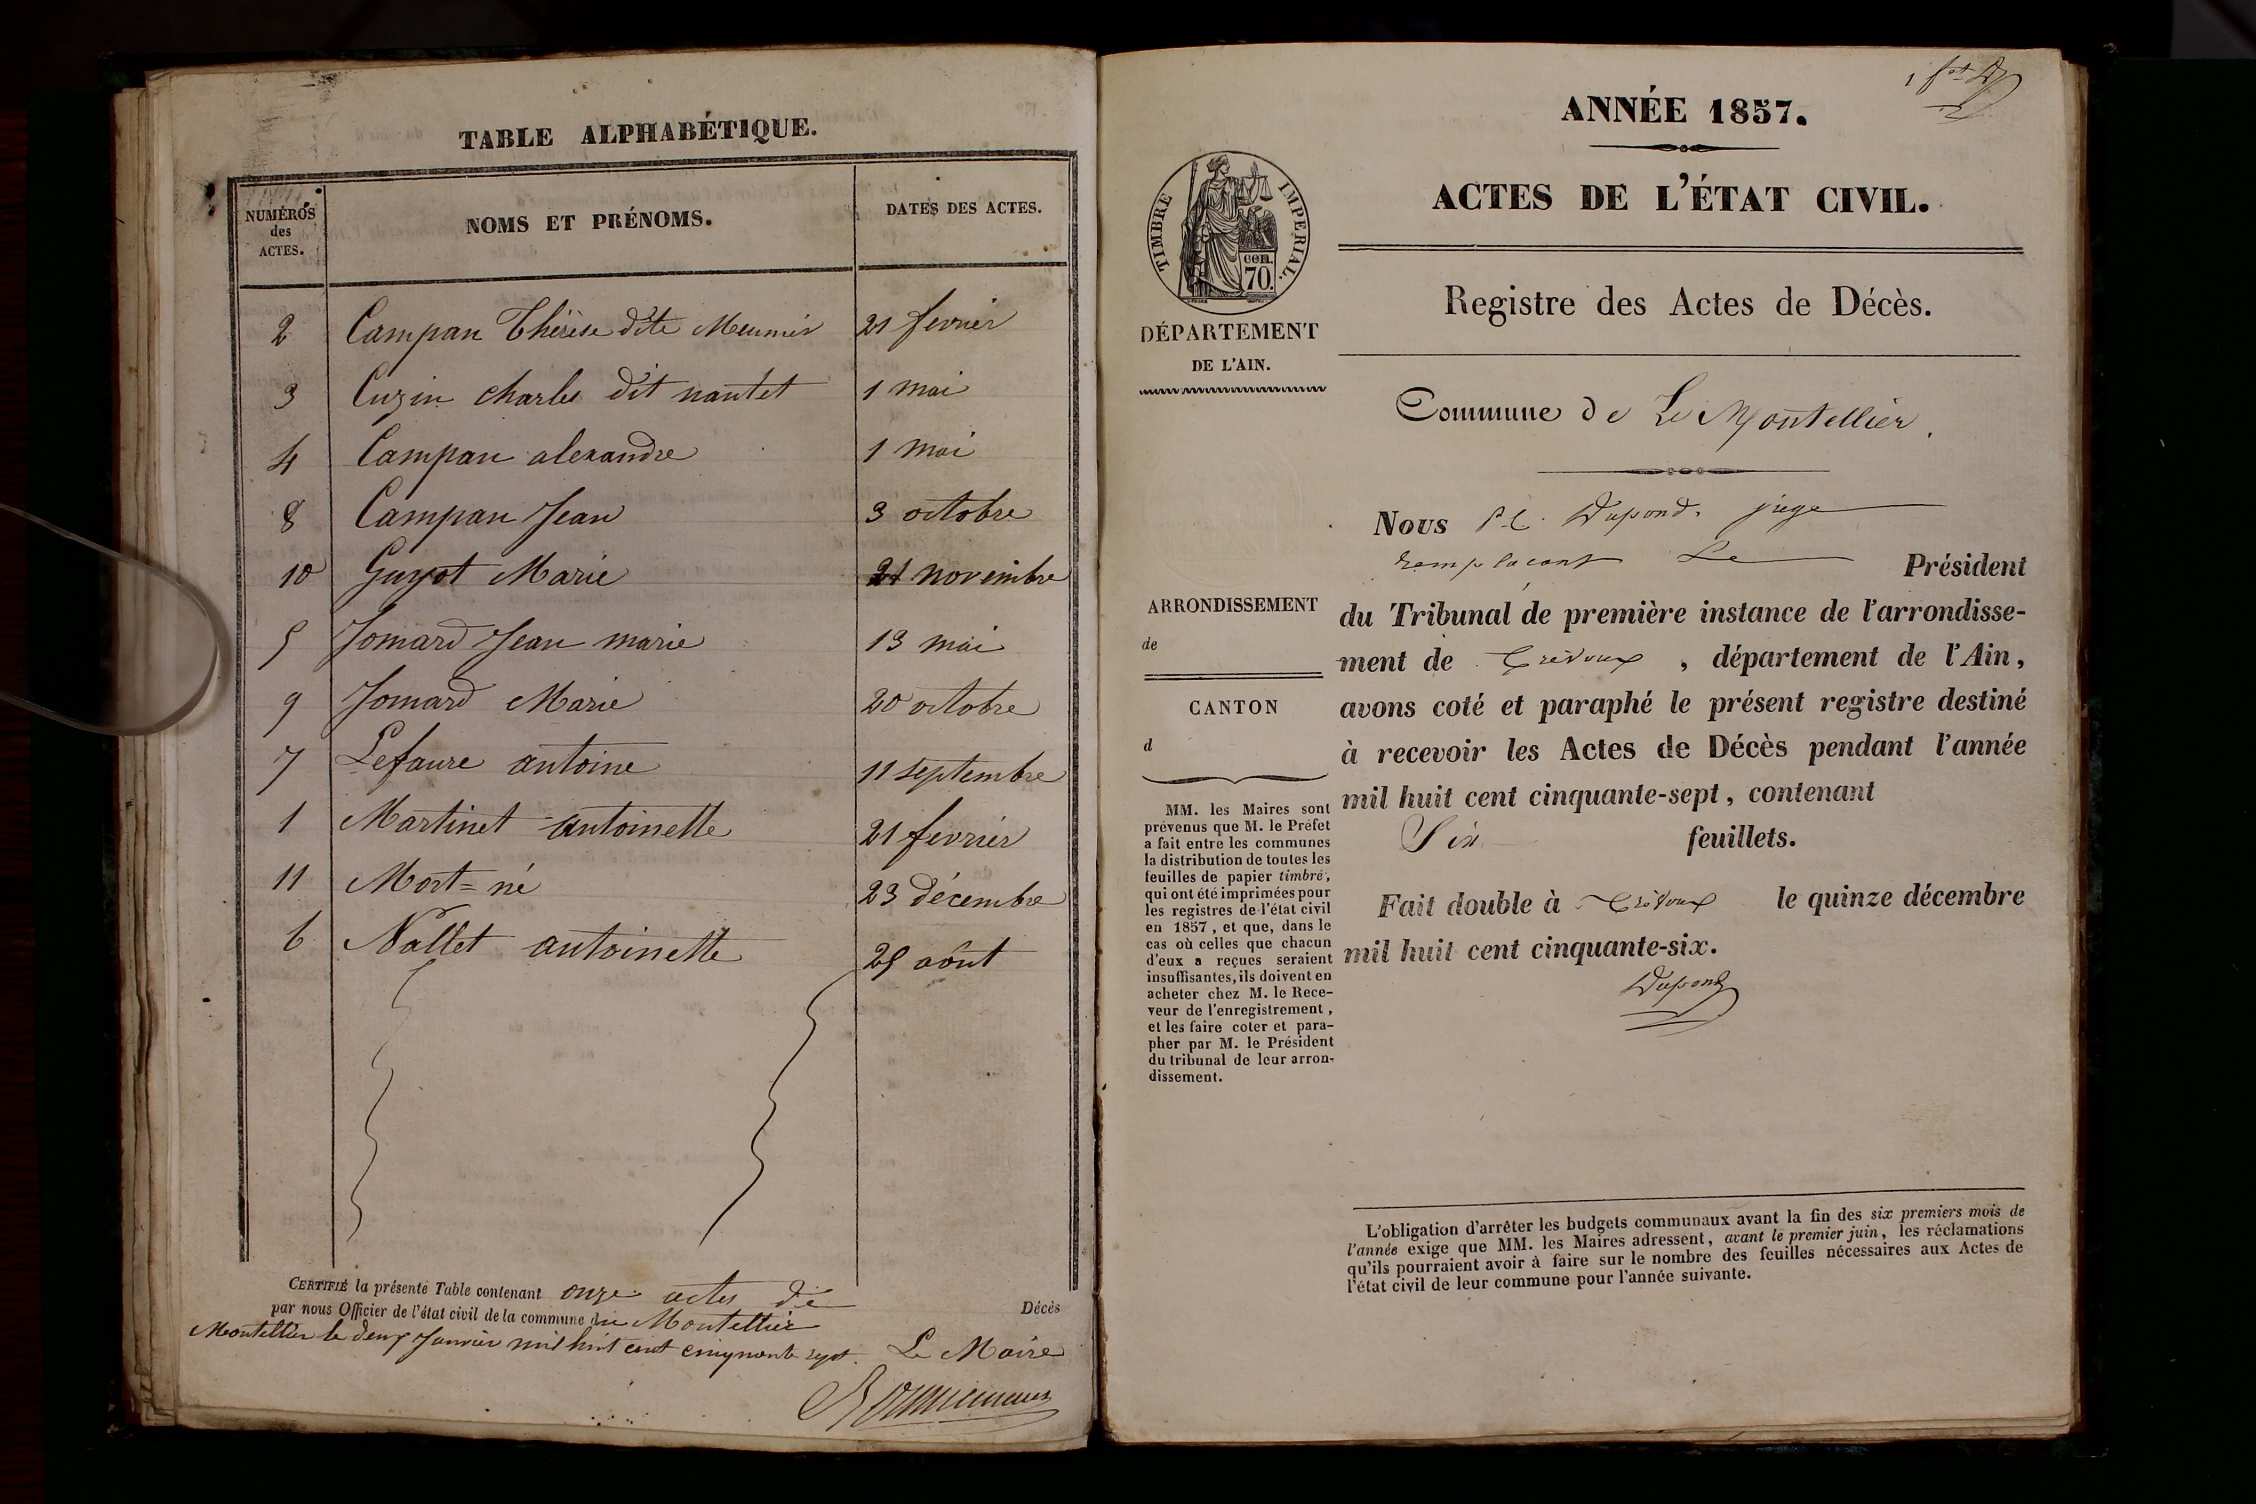 TABLE ALPHABÉTIQUE.
NUMÉROS des ACTES. NOMS ET PRÉNOMS. DATES DES ACTES.
2 Campan Thérèse dite Meunier 21 fevrier
3 Cuzin charles dit nantet 1 mai
4 Campan alexandre 1 mai
8 Campan Jean 3 octobre
10 Guyot Marie 21 novembre
5 Jomard Jean marie 13 mai
9 Jomard Marie 20 octobre
7 Lefaure antoine 11 septembre
1 Martinet antoinette 21 fevrier
11 Mort=né 23 décembre
6 Nallet antoinette 25 août
CERTIFIÉ la présente Table contenant onze actes de Décès
par nous Officier de l'état civil de la commune du Montellier
Montellier le deux Janvier mil huit cent cinquante sept. Le Maire
ANNÉE 1857.
ACTES DE L'ÉTAT CIVIL.
TIMBRE IMPERIAL.
cen. 70.
DÉPARTEMENT
DE L'AIN.
Registre des Actes de Décès.
Commune de Le Montellier.
ARRONDISSEMENT
de
CANTON
d
MM. les Maires sont
prévenus que M. le Préfet
a fait entre les communes
la distribution de toutes les
feuilles de papier timbré,
qui ont été imprimées pour
les registres de l'état civil
en 1857, et que, dans le
cas où celles que chacun
d'eux a reçues seraient
insuffisantes, ils doivent en
acheter chez M. le Rece-
veur de l'enregistrement,
et les faire coter et para-
pher par M. le Président
du tribunal de leur arron-
dissement.
Nous Dupond, juge
remplaçant Le Président
du Tribunal de première instance de l'arrondisse-
ment de Trévoux, département de l'Ain,
avons coté et paraphé le présent registre destiné
à recevoir les Actes de Décès pendant l'année
mil huit cent cinquante-sept, contenant
Six feuillets.
Fait double à Trévoux le quinze décembre
mil huit cent cinquante-six.
Dupond
L'obligation d'arrêter les budgets communaux avant la fin des six premiers mois de
l'année exige que MM. les Maires adressent, avant le premier juin, les réclamations
qu'ils pourraient avoir à faire sur le nombre des feuilles nécessaires aux Actes de
l'état civil de leur commune pour l'année suivante.